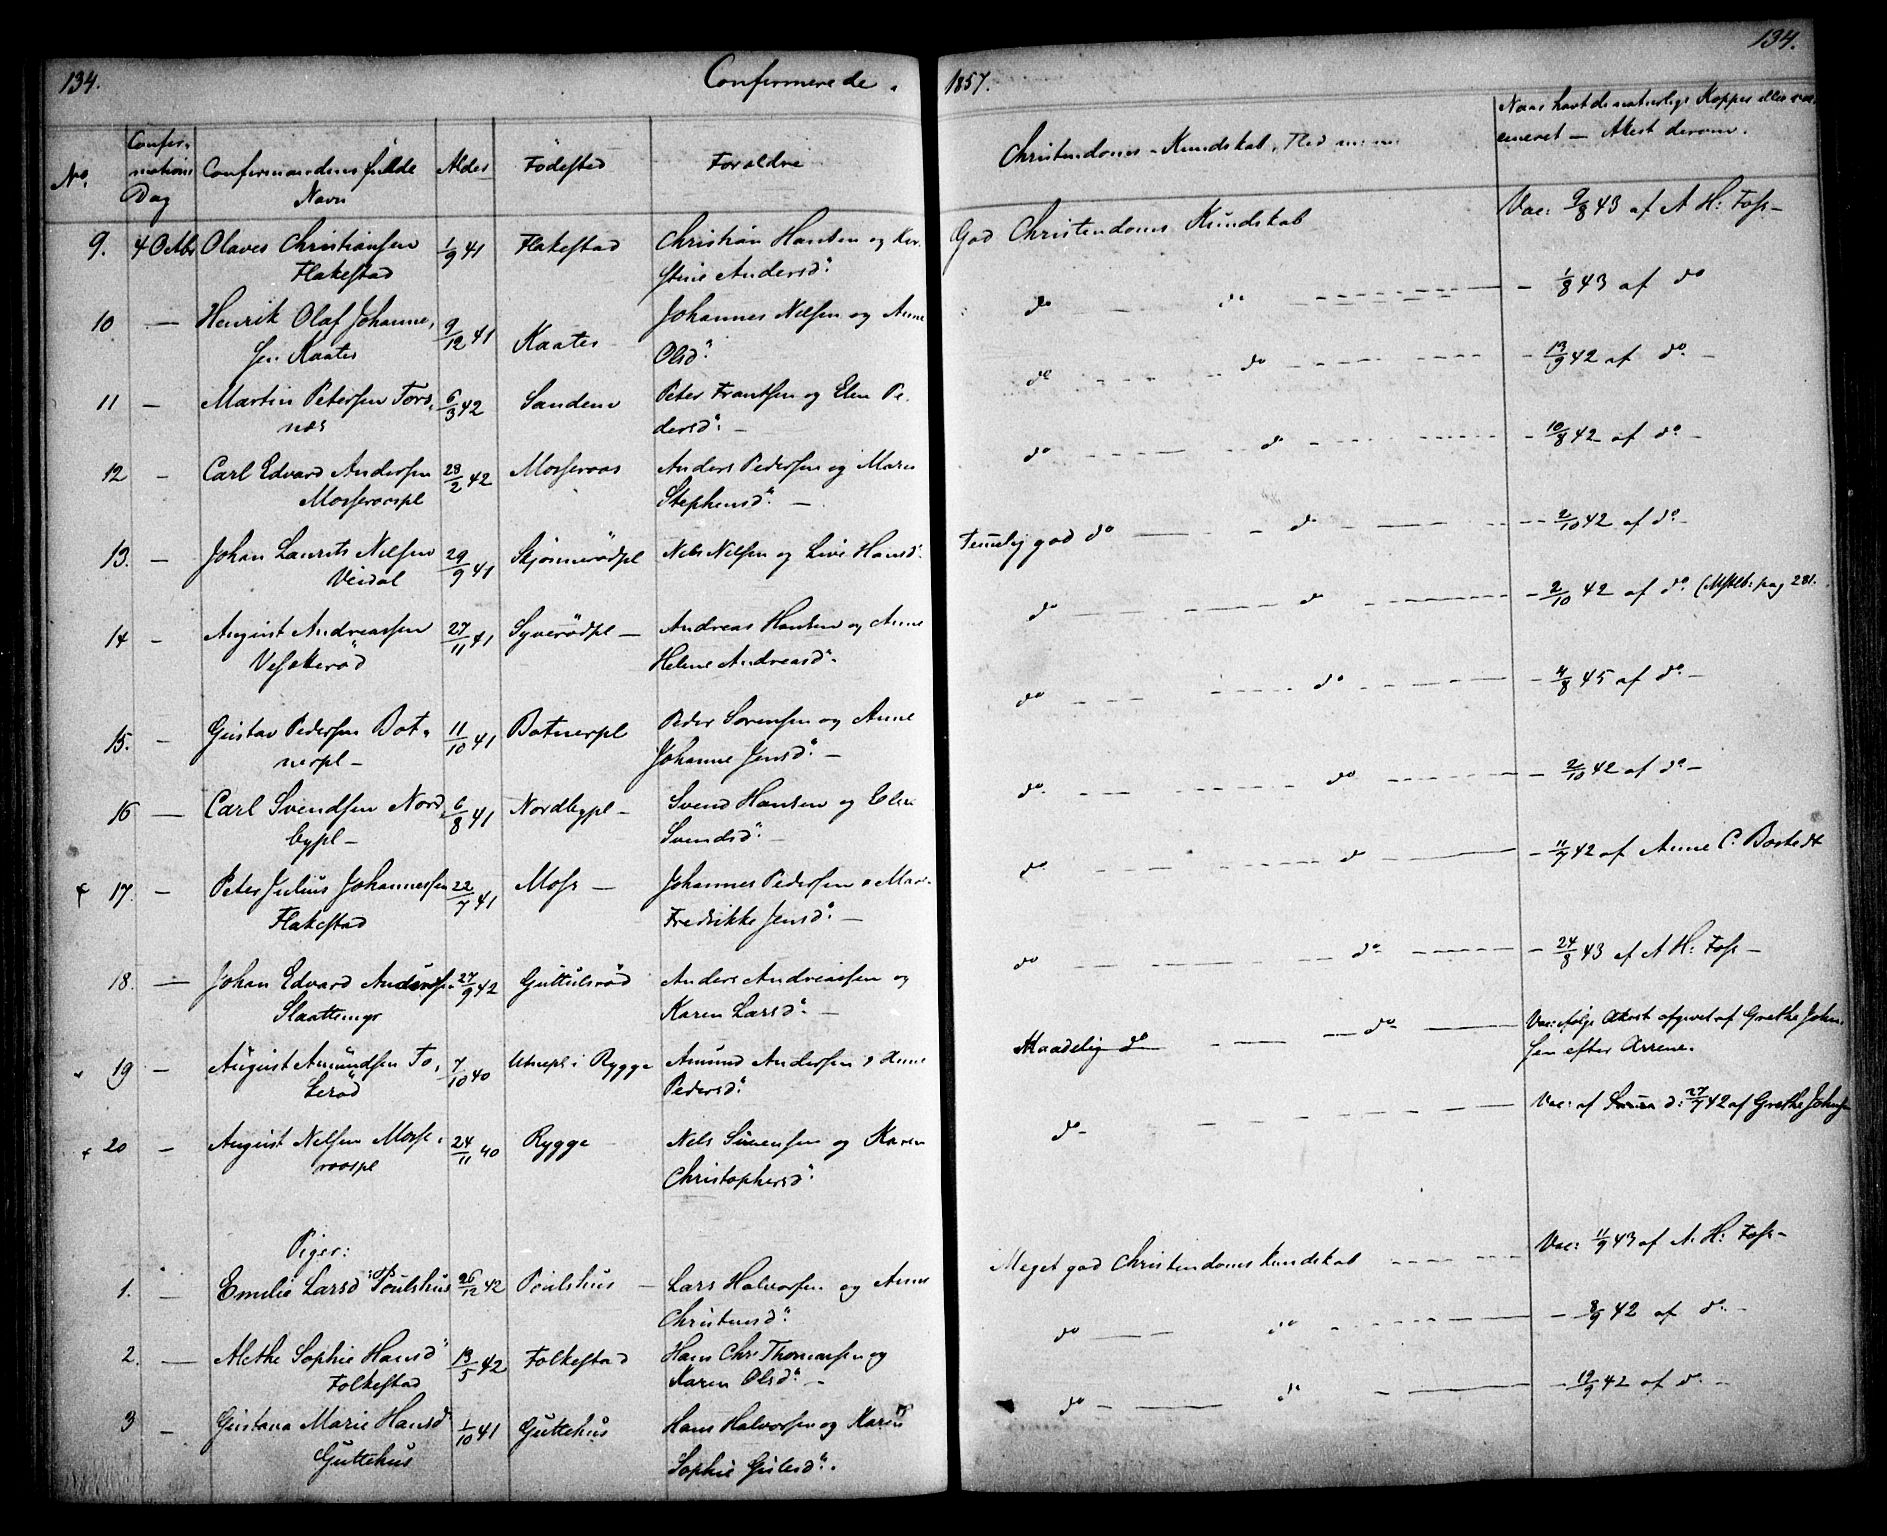 134.
Confirmerede.
1857.
134.
No.
Confirmations Dag
Confirmandens fulde Navn
Alder
Födestad
Foraldre
Christendoms-Kundskab, Flid
Naar havt de naturlige Kopper eller vaccineret — Attest derom.
9. 4 Octbr Olaves Christiansen 1/9 41 Flakestad Christian Hansen og Ker-
Flakestad stine Andersd:
God Christendoms Kundskab Vac: 9/8 43 af A H: Foss —
10 — Henrik Olaf Johanne- 9/12 41 Kaates Johannes Nelsen og Anne
sen Kaates Olsd:
do do — 1/8 43 af do
11 — Martin Petersen Tors- 6/3 42 Sanden Peter Frantsen og Elen Pe-
nes dersd: —
do do — 13/9 42 af do —
12 — Carl Edvard Andersen 28/2 42 Mosseroos Anders Pedersen og Maren
Mosseroospl Stephensd: —
do do — 10/8 42 af do —
13. — Johan Laurits Nelsen 29/9 41 Skjönnerödpl Nels Nelsen og Live Hansd:
Veidal
Temelig god do — do — 2/10 42 af do —
14 — August Andreassen 27/11 41 Syverödpl — Andreas Hansen og Anne
Veskeröd Helene Andreasd:
do do — 2/10 42 af do (Mstlb: pag 281.
15. — Gustav Pedersen Bot- 11/10 41 Botnerpl Peder Sorensen og Anne
nerpl — Johanne Jensd: —
do do — 4/8 45 af do —
16 — Carl Svendsen Nord- 6/8 41 Nordbypl — Svend Hansen og Elen
bypl — Svendsd: —
do do — 2/10 42 af do —
17. — Peter Julius Johannessen 22/7 41 Moss — Johannes Pedersen o Mar-
Flakestad Fredrikke Jensd: —
do do — 11/7 42 af Anne C. Bostedt
18. — Johan Edvard Anders- 27/9 42 Guttulsröd Anders Andreassen og
Slaattemyr Karen Larsd: —
do do — 24/8 43 af A H: Foss —
19 — August Amundsen To- 7/10 40 Utnepl i Rygge Amund Andersen o Anne
leröd Pedersd:
Maadelig do — do — Vac: ifølge Attest afgivet af Grethe John-
sen efter Arrene.
20 — August Nelsen Mosse- 24/11 40 Rygge Nels Simensen og Karen
roospl Christophersd:
do — Vac: af d: 27/7 42 af Grethe Johnsen
Piger:
1. — Emilie Larsd: Poulshus 26/12 42 Poulshus — Lars Halvorsen og Anne
Christensd:
Meget god Christendoms kundskab Vac: 11/9 43 af A. H: Foss —
2. — Alethe Sophie Hansd: 13/5 42 Folkestad Hans Chr: Thomassen og
Folkestad Karen Olsd: —
do do — 8/9 42 af do —
3 — Gustava Marie Hansd: 1/10 41 Guttehus Hans Halvorsen og Karen
Guttehus Sophie Gulesd:
do do — 19/9 42 af do —